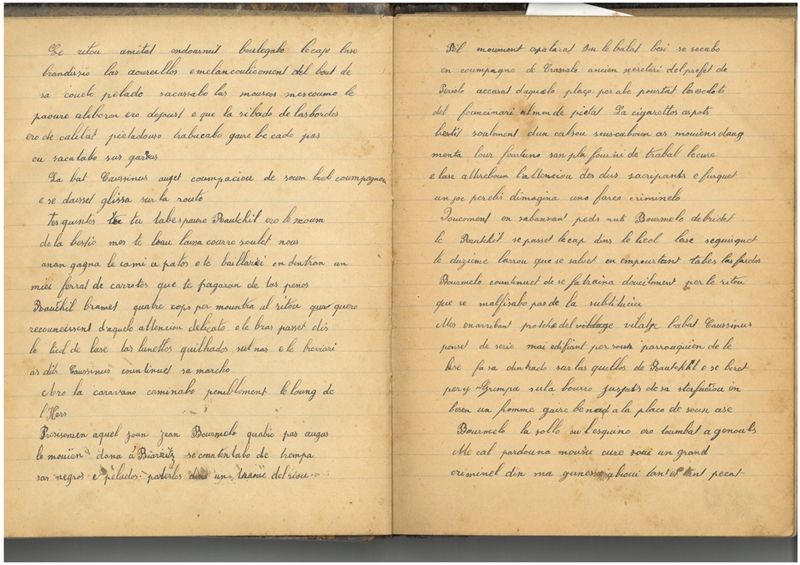 Le ritou amitat endourmit boulegabo lecap lase
brandissio las aoureillos e melancoulicoment del bout de
sa coueto pelado sacassabo las mouscos mescoumo le
paoure aleberou ero dejourst e que la sibado de lasbordos
ero de calitat preladouso trabucabo gaire le cado pos
ou sacatabo sus garres
La bat Caussinus auget coumpaciou de soun biel coumpagnou
e se daisset glissa sur la routo
tes quintos tu tabes paure Rautchil ero le xcoum
de la bestio mes te baou laissa courre soulet nous
anan gagna le cami a patos e te baillarei en dintran un
miei ferrat de carrotos que te pagaran de tas penos
Rautchil bramet quatre cops per mountra al ritou quero
recouneissent d'aquelo attencion delicato e le bras passet dis
lo licol de lase las lunettos quilhados sul nas e le breviari
as dits Caussinus countinuet sa marcho
Aro la caravano caminabo peniblement le loung de
l'Hers
Pensonsen aquel joun jean Bourmelo quabio pas augut
le mouien dana a Biarritz se countentabo de trempa
sas negros e pelados paterlos dins un traouc del riou
Del moument capatarat sur le talat besi se secabo
en coumpagno de Cassolo ancien secretari del prefet de
Periolo accusat daquelo plaço per abe pourtat lesesclots
del francimari al mon de pietat La cigarettos aspots
bestit soulomen dun calsou sous cabouin as mouiens daug
menta lour fourtuno san pla fourni de trabal lecure
e lase attireboun l'attenciou des dus sacripants e furguet
un joc perelis dimagina uno farço criminelo
Doucoment en sabansant peds nuts Bourmelo debridet
le Rautchil se passet lecap dins le licol lase seguisquet
le duzieme larrou que se salvet en empourtant tabes las fardos
Bourmelo countinuet de se fa traina doucitoment per le ritou
que se malfisabo pas de la substitucieu
Mes en arribant proche del vilatge labat Caussinus
pauset de serio mai edifiant per sous parrouquien de le
bese fa sa dintrado sus las quillos de Rautchil e se biret
per y Grimpa sula bourro jusprts de sa stufactiou in
beren un homme gaire be nud a la plaço de soun ase
Bourmelo la sello sur l'esquino ero toumbat a genouls
Me cal pardouna moussu cure soui un grand
criminel din ma jornesso abioui tant et tant pecat-